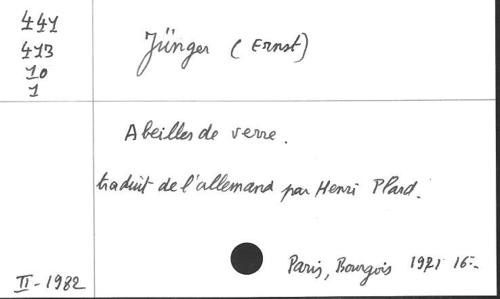 441
413
10
1
Jünger (Ernst)
Abeilles de verre.
traduit de l'allemand par Henri Plard.
Paris, Bourgois 1971 16:-
II-1982